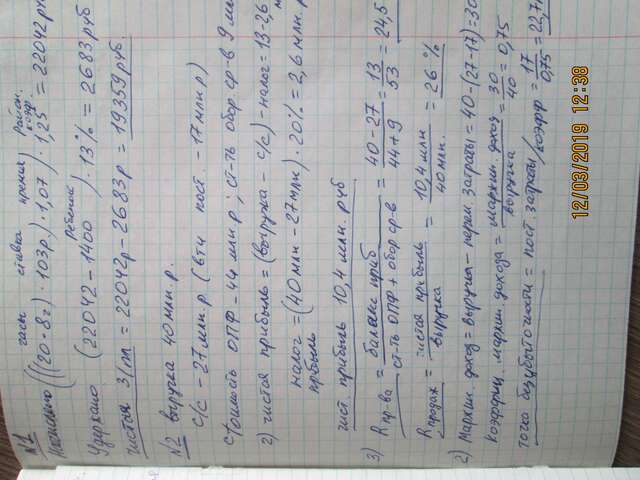 N1 часы ставка премия Район. коэф.
Начислено (((20·8г)·103р)·1,07)·1,25 = 22042р
Ребенок
Удержано (22042-1400)·13% = 2683руб
чистая З/пл = 22042р-2683р = 19359руб.
N2 выручка 40млн.р.
с/с - 27млн.р (вти пост. - 17млн р)
стоимость ОПФ-44 млн.р; ст-ть обор ср-в 9 мл
2) чистая прибыль = (выручка - с/с) - налог = 13-2,6
налог прибыль = (40млн-27млн)·20% = 2,6 млн.р
чист. прибыль 10,4 млн. руб.
3) R пр-ва = баланс приб / ст-ть ОПФ + обор ср-в = 40-27 / 44+9 = 13 / 53 = 24,5
R продаж = чистая прибыль / выручка = 10,4 млн / 40млн. = 26%
2) Маржин. доход = выручка - перем. затраты = 40-(27-17) = 30
Коэффиц. маржин. дохода = маржин. доход / выручка = 30 / 40 = 0,75
точка безубыточности = пост. затраты / коэфф = 17 / 0,75 = 22,7
12/03/2019 12:38